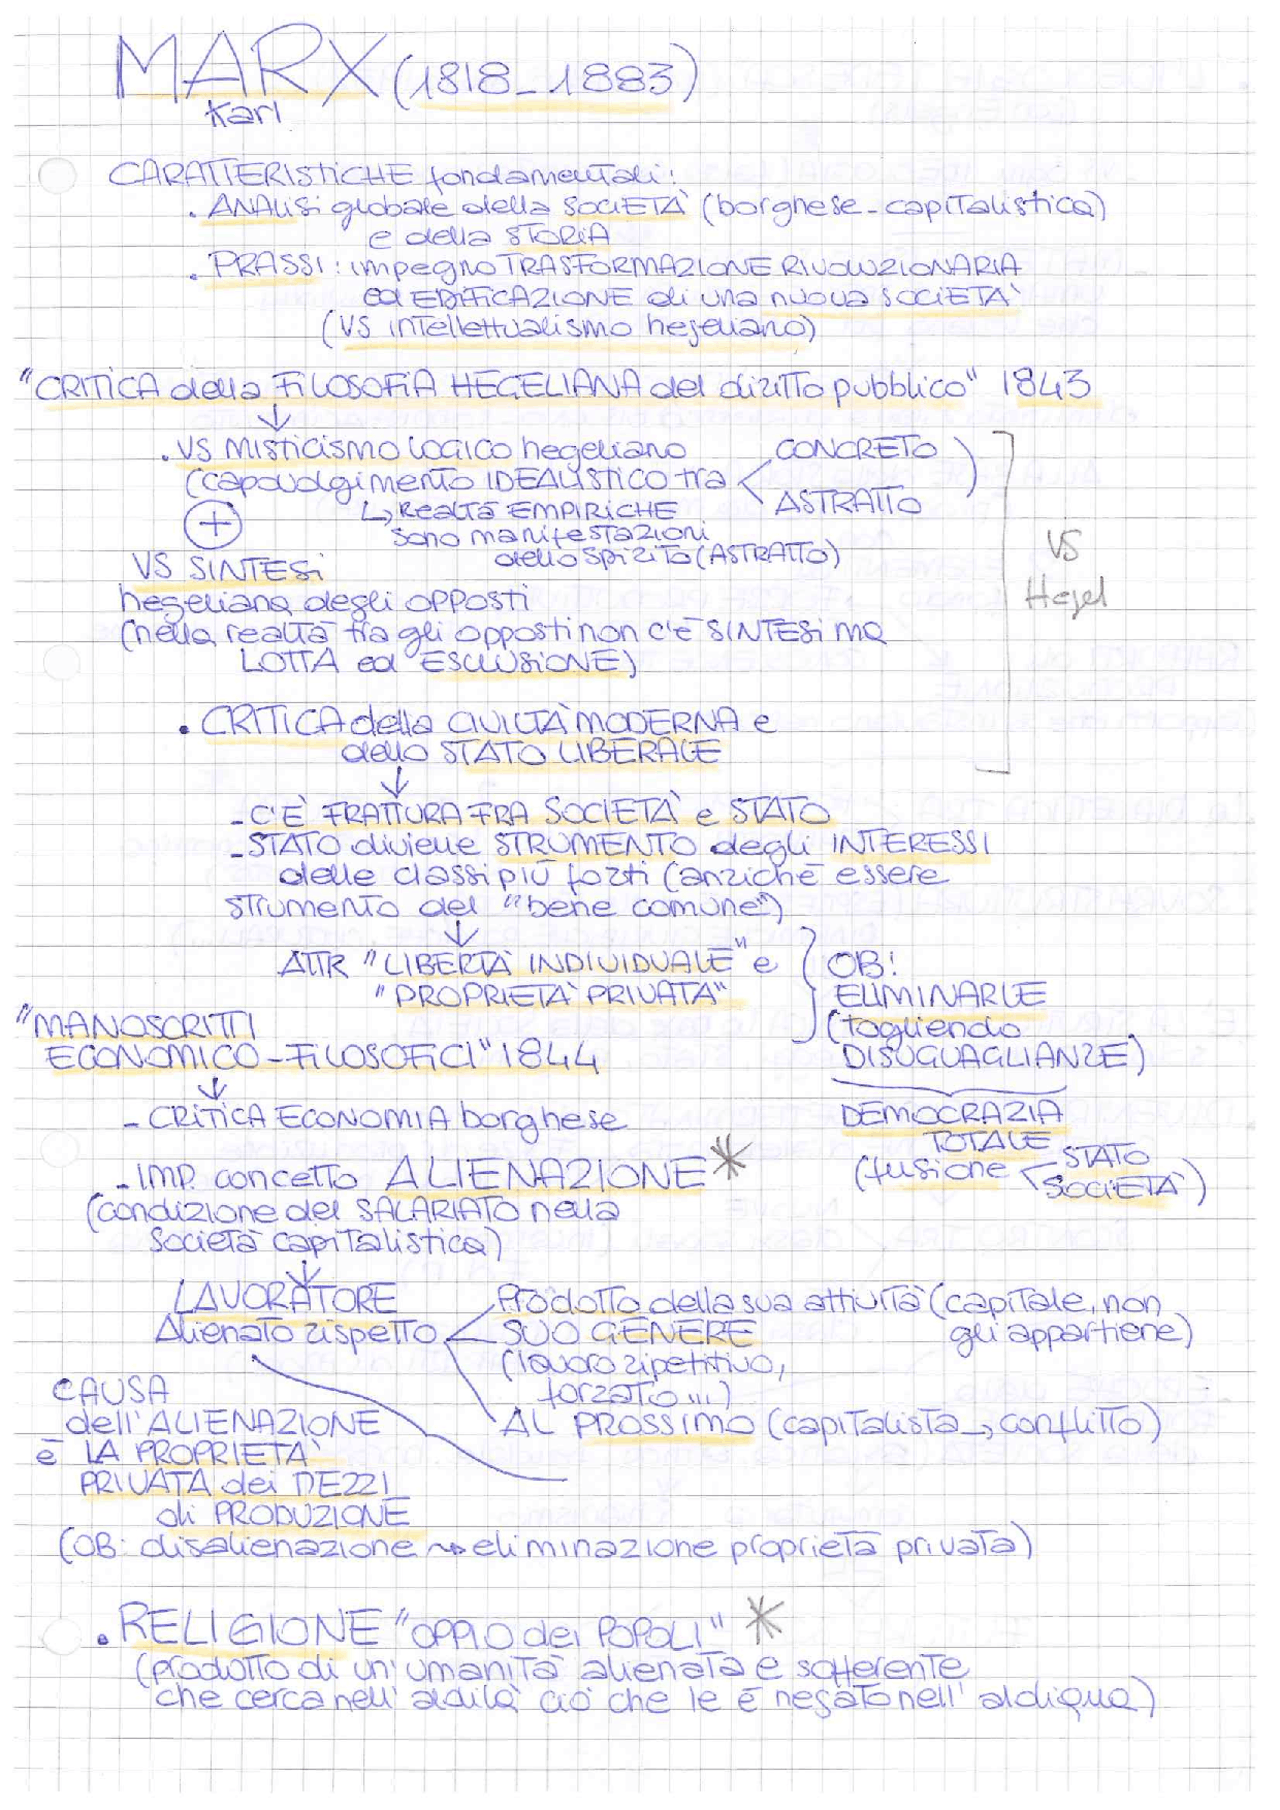 MARX (1818-1883)
Karl
CARATTERISTICHE fondamentali:
. ANALISI globale della SOCIETÀ (borghese-capitalistica)
e della STORIA
. PRASSI: impegno TRASFORMAZIONE RIVOLUZIONARIA
ed EDIFICAZIONE di una nuova SOCIETÀ
(VS intellettualismo hegeliano)
"CRITICA della FILOSOFIA HEGELIANA del diritto pubblico" 1843
↓
. VS MISTICISMO LOGICO hegeliano
(capovolgimento IDEALISTICO tra < CONCRETO
ASTRATTO )
↳ Realtà EMPIRICHE
sono manifestazioni
dello spirito (ASTRATTO)
+
VS SINTESI
hegeliana degli opposti
(nella realtà fra gli opposti non c'è SINTESI ma
LOTTA ed ESCLUSIONE)
VS
Hegel
. CRITICA della CIVILTÀ MODERNA e
dello STATO LIBERALE
↓
- C'È FRATTURA FRA SOCIETÀ e STATO
- STATO diviene STRUMENTO degli INTERESSI
delle classi più forti (anziché essere
strumento del "bene comune")
↓
ATTR "LIBERTÀ INDIVIDUALE" e
"PROPRIETÀ PRIVATA"
OB:
ELIMINARLE
(togliendo
DISUGUAGLIANZE)
DEMOCRAZIA
TOTALE
(fusione < STATO
SOCIETÀ)
"MANOSCRITTI
ECONOMICO-FILOSOFICI" 1844
↓
- CRITICA ECONOMIA borghese
- IMP. concetto ALIENAZIONE *
(condizione del SALARIATO nella
società capitalistica)
↓
LAVORATORE
Alienato rispetto
Prodotto della sua attività (capitale, non
gli appartiene)
SUO GENERE
(lavoro ripetitivo,
forzato ...)
AL PROSSIMO (capitalista → conflitto)
CAUSA
dell'ALIENAZIONE
è LA PROPRIETÀ
PRIVATA dei MEZZI
di PRODUZIONE
(OB: disalienazione ⇝ eliminazione proprietà privata)
. RELIGIONE "OPPIO dei POPOLI" *
(prodotto di un'umanità alienata e sofferente
che cerca nell'aldilà ciò che le è negato nell'aldiqua)